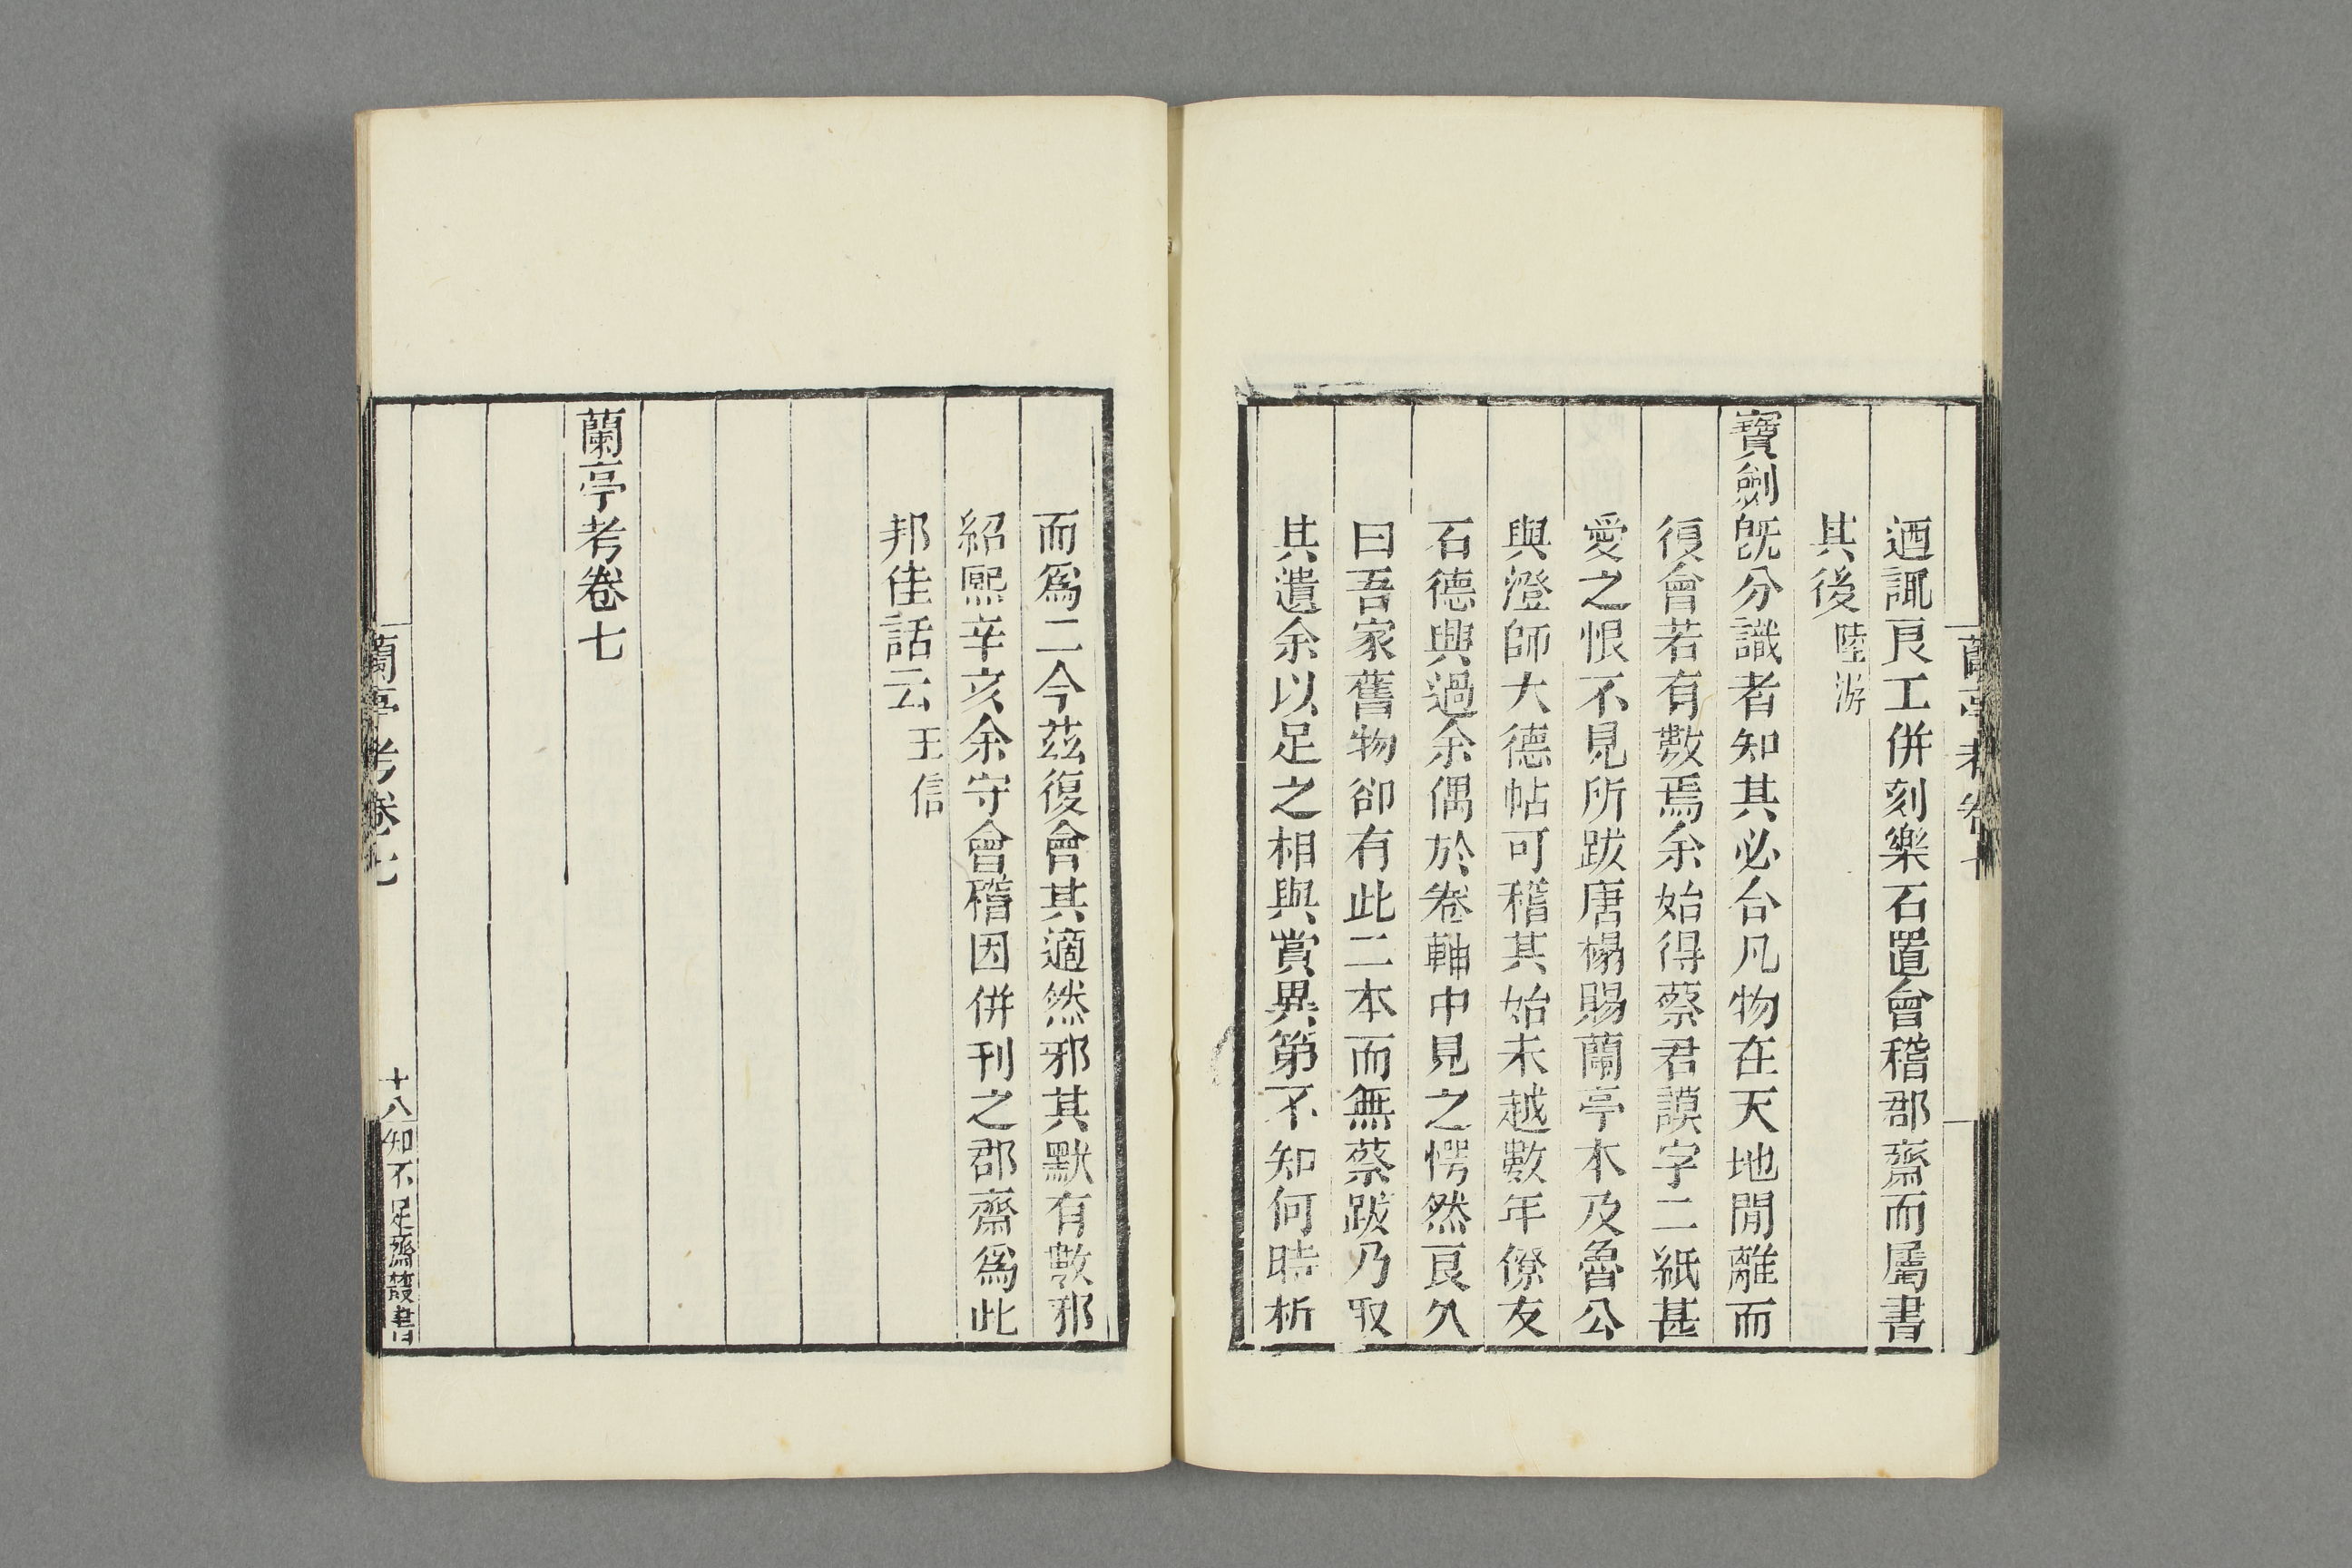 蘭亭考卷七
迺諏良工併刻樂石置會稽郡齋而屬書
其後陸游
寶劍旣分識者知其必合凡物在天地閒離而
復會若有數焉余始得蔡君謨字二紙甚
愛之恨不見所跋唐榻賜蘭亭本及魯公
與澄師大德帖可稽其始未越數年僚友
石德興過余偶於卷軸中見之愕然良久
曰吾家舊物卻有此二本而無蔡跋乃取
其遺余以足之相與賞異第不知何時析
而爲二今茲復會其適然邪其默有數邪
紹熙辛亥余守會稽因併刊之郡齋爲此
邦佳話云王信
蘭亭考卷七
蘭亭考卷七
十八
知不足齋叢書